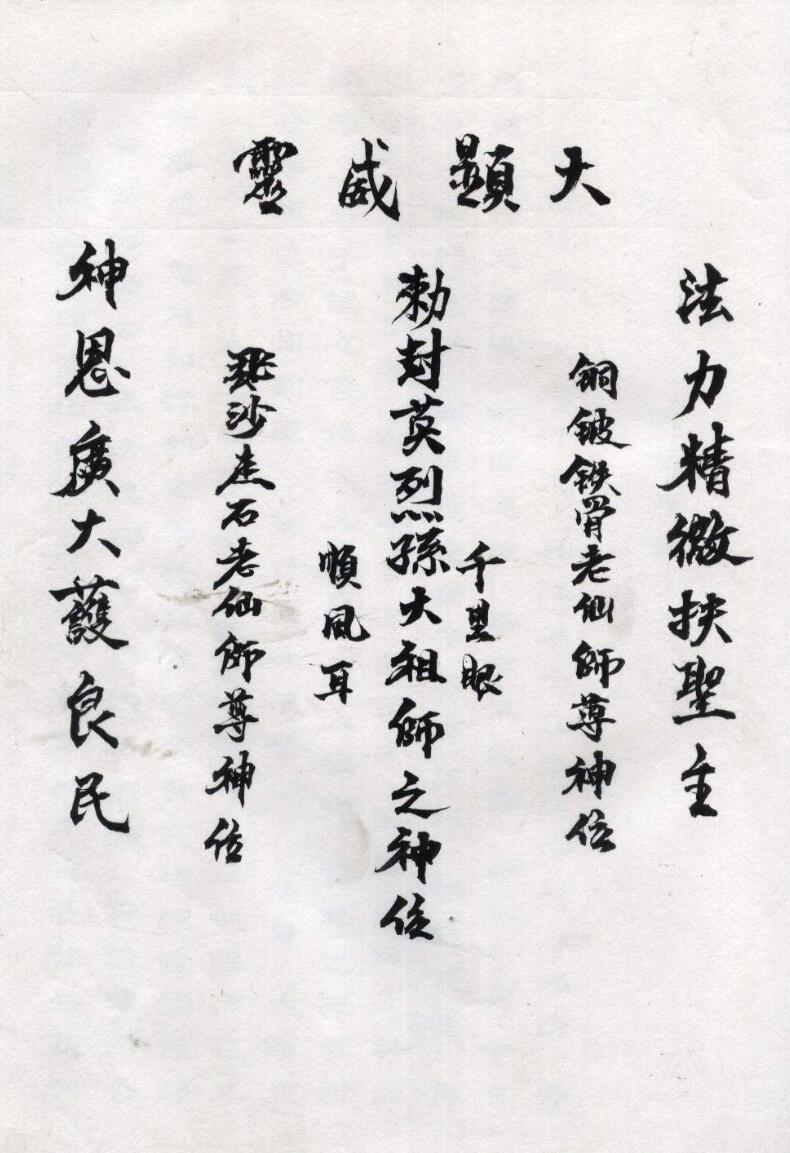 大顯威靈
法力精微扶聖主
銅皮鉄骨老仙師尊神位
千里眼
勅封英烈孫大祖師之神位
順風耳
沙走石老仙師尊神位
神恩廣大護良民